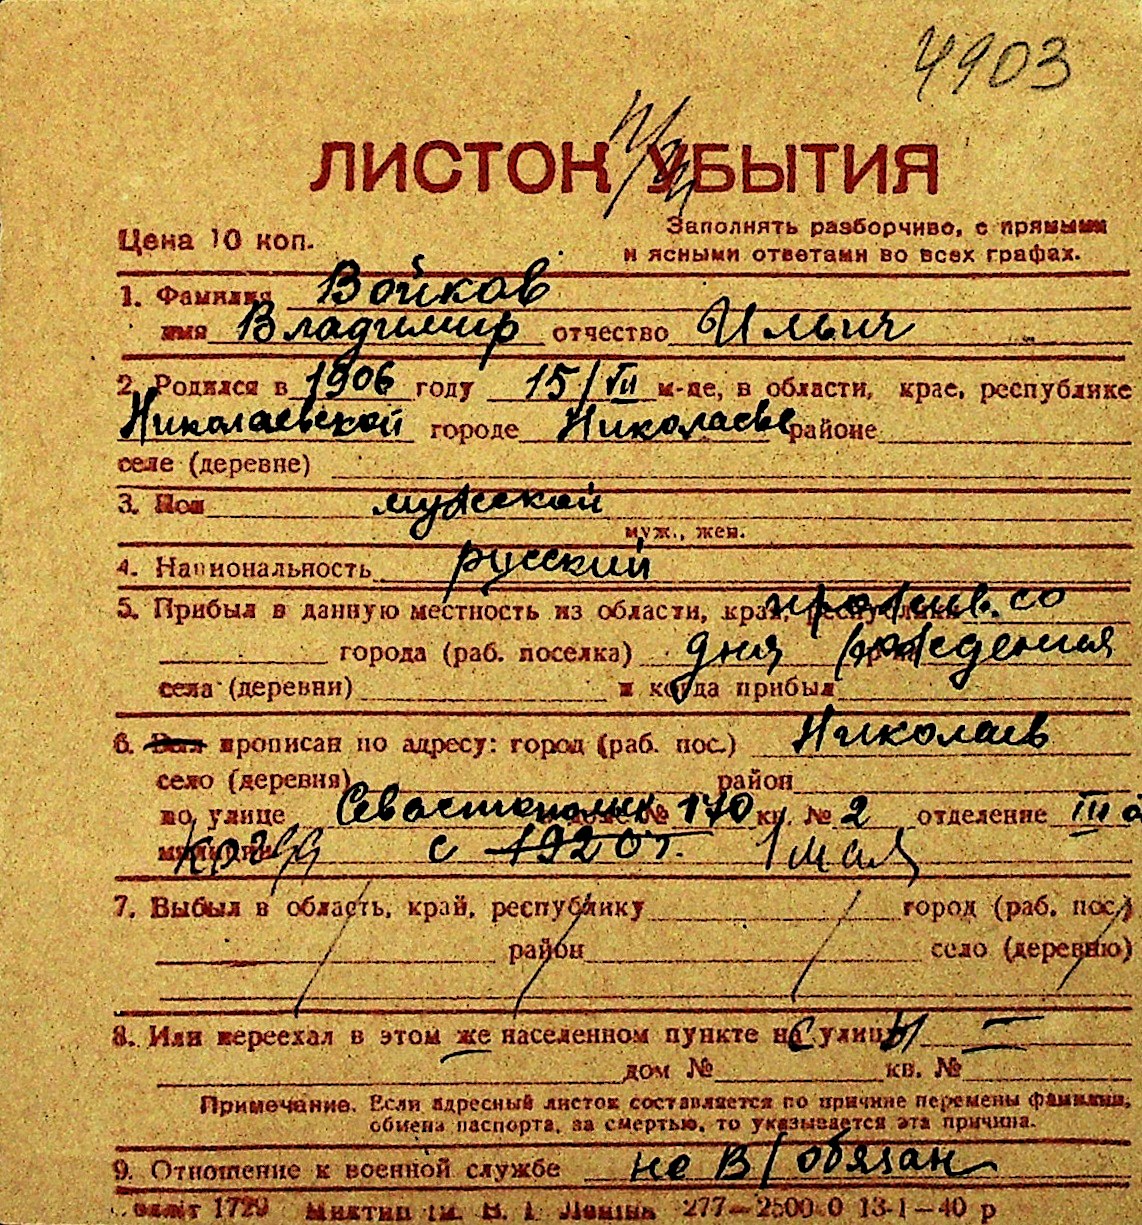 4903
ЛИСТОК УБЫТИЯ
Цена 10 коп.
Заполнять разборчиво, с прямыми
и ясными ответами во всех графах.
1. Фамилия Войков
имя Владимир отчество Ильич
2. Родился в 1906 году 15/VII м-це, в области, крае, республике
Николаевской городе Николаеве районе
селе (деревне)
3. Пол мужской
муж., жен.
4. Национальность русский
5. Прибыл в данную местность из области, края, республики прожив. со
города (раб. поселка) дня рождения
села (деревни) и когда прибыл
6. Был прописан по адресу: город (раб. пос.) Николаев
село (деревня) район
по улице Севастопольск № 170 кв. № 2 отделение III
милиции когда с 1920 г. 1 мая
7. Выбыл в область, край, республику город (раб. пос.)
район село (деревню)
8. Или переехал в этом же населенном пункте на с улицы —
дом № кв. №
Примечание. Если адресный листок составляется по причине перемены фамилии,
обмена паспорта, за смертью, то указывается эта причина.
9. Отношение к военной службе не в/обязан
1729 им. В. И. Ленина 277—2500 0 13-1—40 р